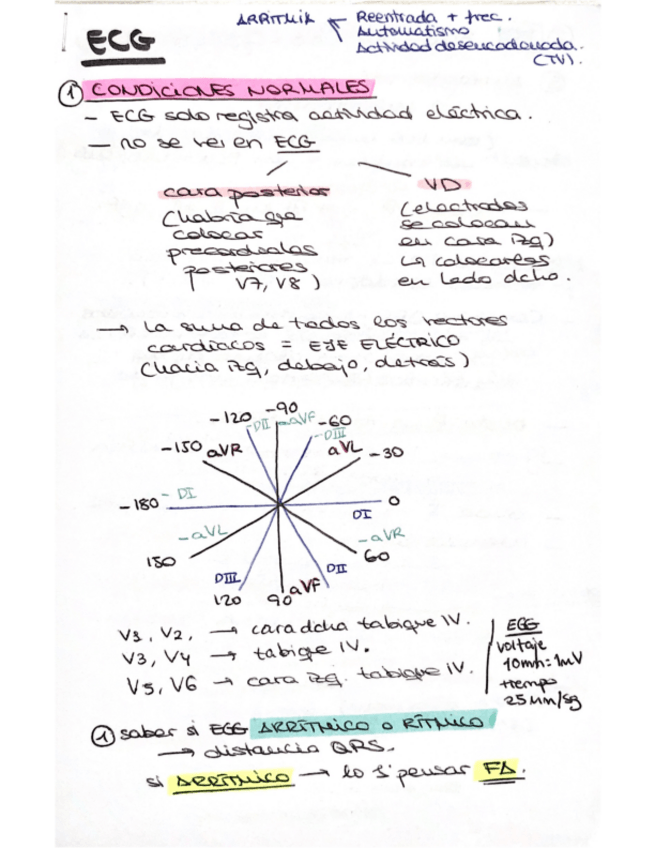 ECG
ARRITMIA
Reentrada + frec.
Automatismo
Actividad desencadenada.
(TV).
① CONDICIONES NORMALES
- ECG solo registra actividad eléctrica.
- no se ve en ECG
cara posterior
(habría que
colocar
precordiales
posteriores
V7, V8)
VD
(electrodos
se colocan
en cara izq)
↳ colocarlos
en lado dcho.
→ La suma de todos los vectores
cardiacos = EJE ELÉCTRICO
(hacia izq, debajo, detrás)
-120
-DII
-90
-aVF
-60
-DIII
-150 aVR
aVL -30
-180 - DI
0
DI
-aVL
150
-aVR
60
DIII
120
90 aVF
DII
V1, V2, → cara dcha tabique IV.
V3, V4 → tabiqe IV.
V5, V6 → cara izq. tabique IV.
EGG
voltaje
10mm = 1mV
tiempo
25mm/sg
① saber si EGG ARRÍTMICO o RÍTMICO
→ distancia QRS.
si ARRÍTMICO → lo 1º pensar FA.